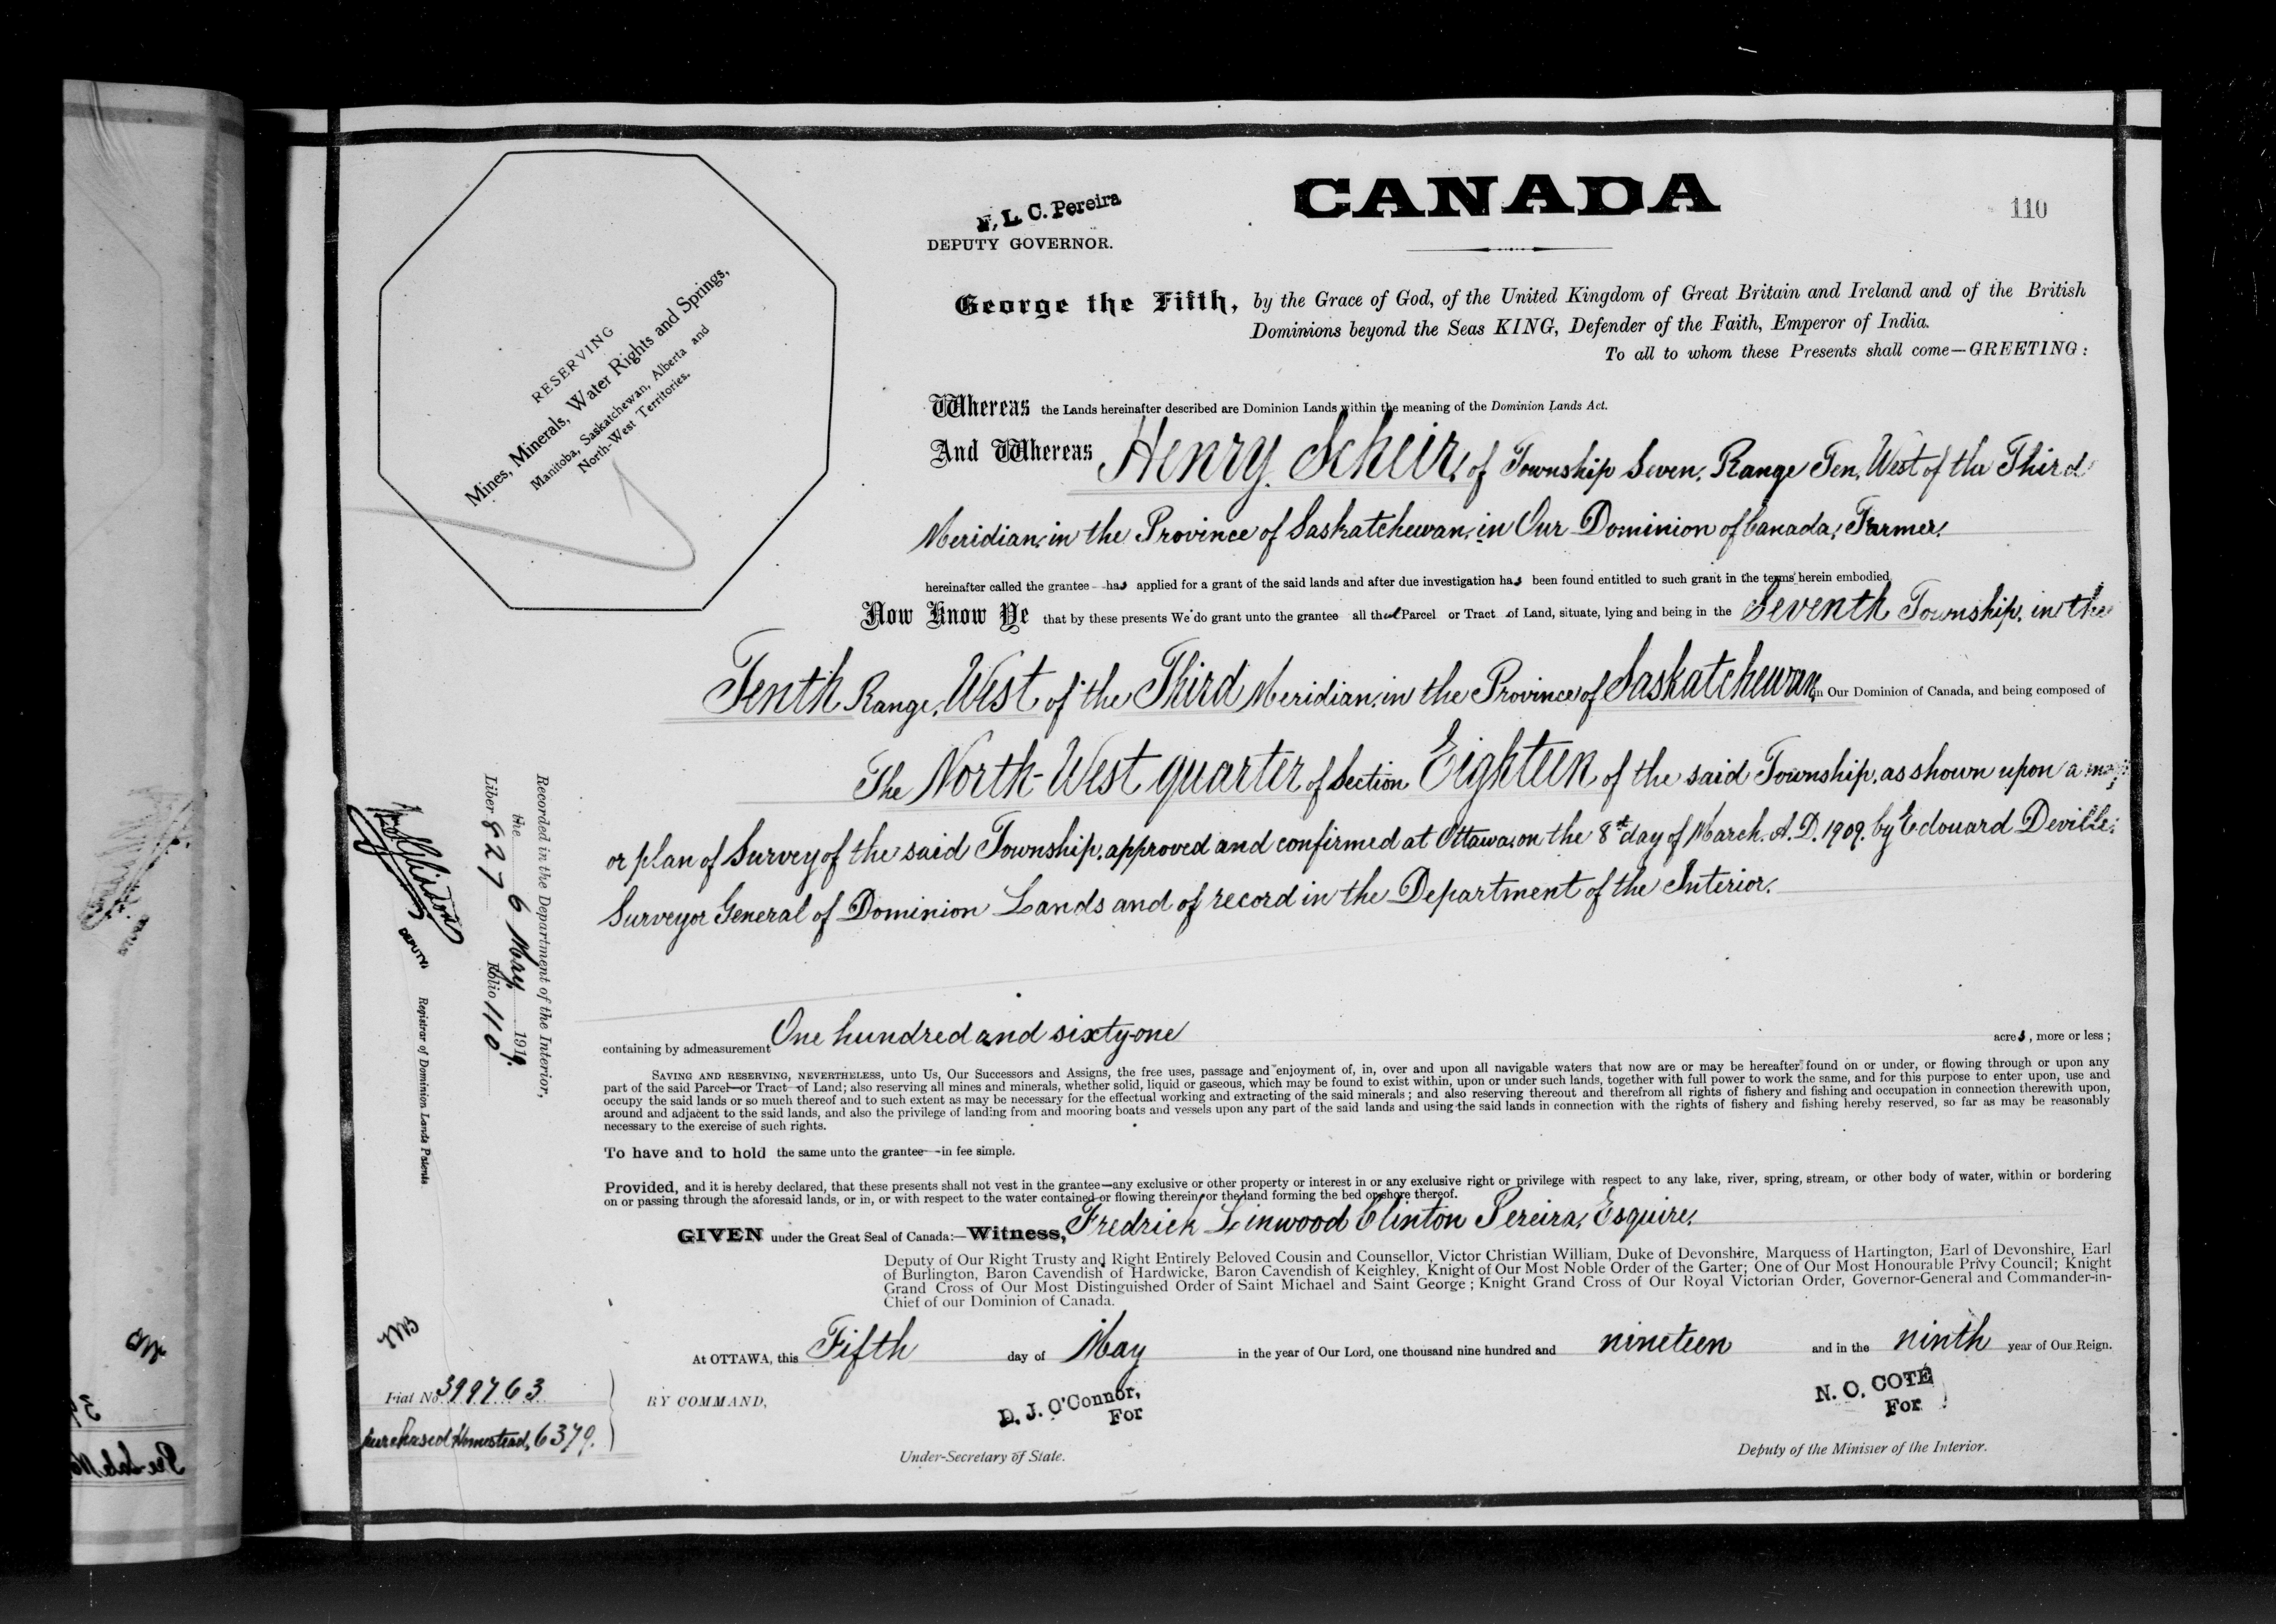 CANADA
110
F. L. C. Pereira
DEPUTY GOVERNOR.
George the Fifth, by the Grace of God, of the United Kingdom of Great Britain and Ireland and of the British
Dominions beyond the Seas KING, Defender of the Faith, Emperor of India.
To all to whom these Presents shall come—GREETING:
RESERVING
Mines, Minerals, Water Rights and Springs,
Manitoba, Saskatchewan, Alberta and
North-West Territories.
Whereas the Lands hereinafter described are Dominion Lands within the meaning of the Dominion Lands Act.
And Whereas Henry Scheir, of Township Seven, Range Ten, West of the Third
Meridian, in the Province of Saskatchewan, in Our Dominion of Canada, Farmer,
hereinafter called the grantee - has applied for a grant of the said lands and after due investigation has been found entitled to such grant in the terms herein embodied
Now Know Ye that by these presents We do grant unto the grantee all that Parcel or Tract of Land, situate, lying and being in the Seventh Township, in the
Tenth Range, West of the Third Meridian, in the Province of Saskatchewan, in Our Dominion of Canada, and being composed of
The North-West quarter of Section Eighteen of the said Township, as shown upon a map
or plan of Survey of the said Township, approved and confirmed at Ottawa, on the 8th day of March, A.D. 1909, by Edouard Deville,
Surveyor General of Dominion Lands and of record in the Department of the Interior.
containing by admeasurement One hundred and sixty-one acres, more or less;
SAVING AND RESERVING, NEVERTHELESS, unto Us, Our Successors and Assigns, the free uses, passage and enjoyment of, in, over and upon all navigable waters that now are or may be hereafter found on or under, or flowing through or upon any
part of the said Parcel—or Tract—of Land; also reserving all mines and minerals, whether solid, liquid or gaseous, which may be found to exist within, upon or under such lands, together with full power to work the same, and for this purpose to enter upon, use and
occupy the said lands or so much thereof and to such extent as may be necessary for the effectual working and extracting of the said minerals; and also reserving thereout and therefrom all rights of fishery and fishing and occupation in connection therewith upon,
around and adjacent to the said lands, and also the privilege of landing from and mooring boats and vessels upon any part of the said lands and using the said lands in connection with the rights of fishery and fishing hereby reserved, so far as may be reasonably
necessary to the exercise of such rights.
To have and to hold the same unto the grantee—in fee simple.
Provided, and it is hereby declared, that these presents shall not vest in the grantee—any exclusive or other property or interest in or any exclusive right or privilege with respect to any lake, river, spring, stream, or other body of water, within or bordering
on or passing through the aforesaid lands, or in, or with respect to the water contained or flowing therein, or the land forming the bed or shore thereof.
GIVEN under the Great Seal of Canada:—Witness, Fredrick Linwood Clinton Pereira, Esquire,
Deputy of Our Right Trusty and Right Entirely Beloved Cousin and Counsellor, Victor Christian William, Duke of Devonshire, Marquess of Hartington, Earl of Devonshire, Earl
of Burlington, Baron Cavendish of Hardwicke, Baron Cavendish of Keighley, Knight of Our Most Noble Order of the Garter; One of Our Most Honourable Privy Council; Knight
Grand Cross of Our Most Distinguished Order of Saint Michael and Saint George; Knight Grand Cross of Our Royal Victorian Order, Governor-General and Commander-in-
Chief of our Dominion of Canada.
At OTTAWA, this Fifth day of May in the year of Our Lord, one thousand nine hundred and nineteen and in the ninth year of Our Reign.
BY COMMAND,
D. J. O'Connor,
For
Under-Secretary of State.
N. O. COTÉ
For
Deputy of the Minister of the Interior.
Recorded in the Department of the Interior,
the 6 May 1919.
Liber 827 Folio 110
DEPUTY
Registrar of Dominion Lands Patents.
Fiat No. 399763
Purchased Homestead, 6379.